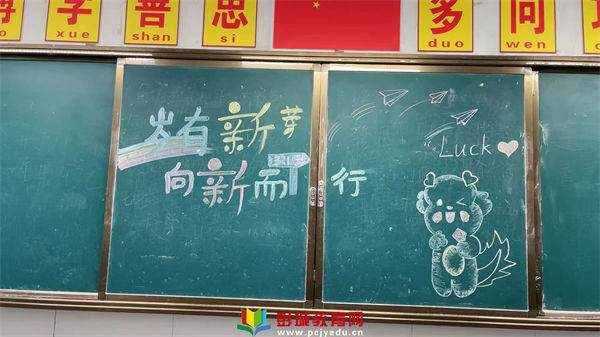 学 善 思 多 问
xue shan si duo wen
岁有新芽
向新而行
"Luck
彭城教育网
www.pcjyedu.cn